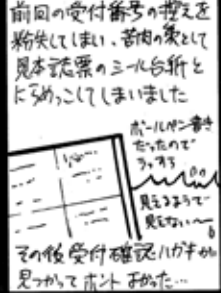 前回の受付番号の控えを
紛失してしまい、苦肉の策として
見本誌票のシール台紙と
にらめっこしてしまいました
ボールペン書き
だったので
うっすら
見えるようで
見えない〜
その後受付確認ハガキが
見つかってホントよかった…